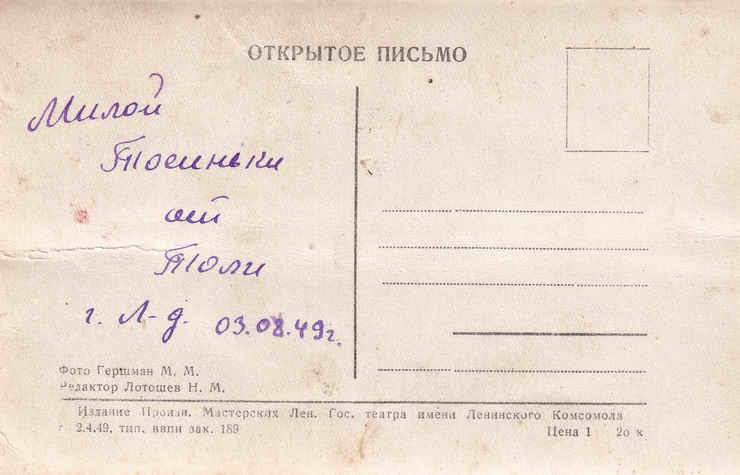 ОТКРЫТОЕ ПИСЬМО
Милой
Тосиньки
от
Толи
г. Л-д. 03.08.49г.
Фото Гершман М. М.
Редактор Лотошев Н. М.
Издание Произв. Мастерских Лен. Гос. театра имени Ленинского Комсомола
г 2.4.49, тип. ввпи зак. 189 Цена 1 2о к